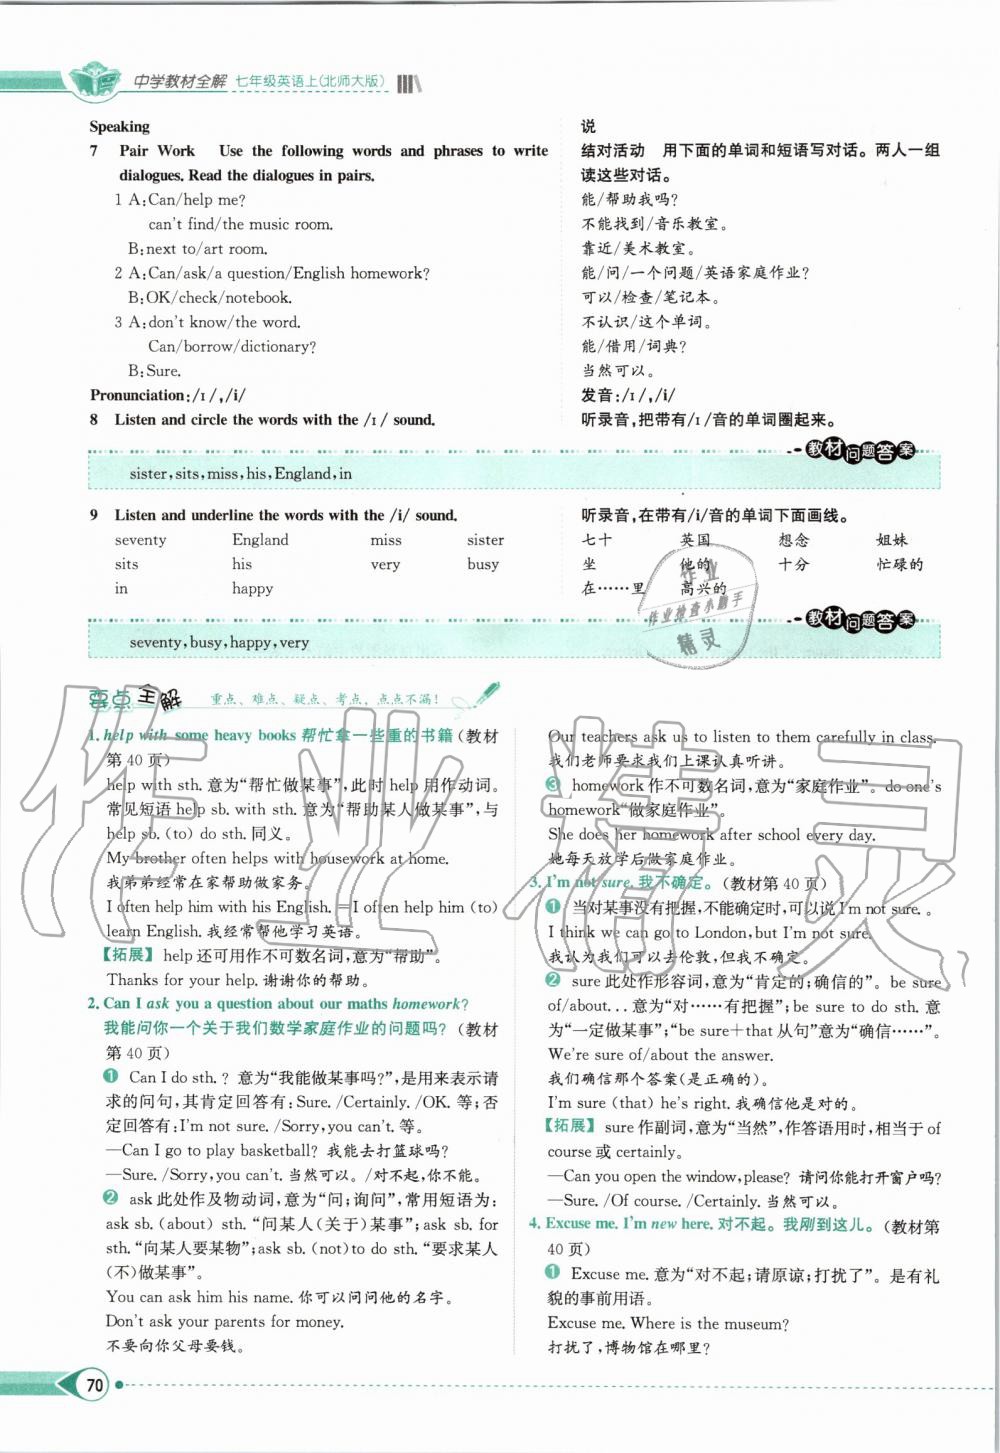 中学教材全解 七年级英语上(北师大版)
Speaking
7 Pair Work Use the following words and phrases to write
dialogues. Read the dialogues in pairs.
1 A:Can/help me?
can't find/the music room.
B:next to/art room.
2 A:Can/ask/a question/English homework?
B:OK/check/notebook.
3 A:don't know/the word.
Can/borrow/dictionary?
B:Sure.
Pronunciation:/ɪ/,/i/
8 Listen and circle the words with the /ɪ/ sound.
说
结对活动 用下面的单词和短语写对话。两人一组
读这些对话。
能/帮助我吗?
不能找到/音乐教室。
靠近/美术教室。
能/问/一个问题/英语家庭作业?
可以/检查/笔记本。
不认识/这个单词。
能/借用/词典?
当然可以。
发音:/ɪ/,/i/
听录音,把带有/ɪ/音的单词圈起来。
教材问题答案
sister,sits,miss,his,England,in
9 Listen and underline the words with the /i/ sound.
seventy England miss sister
sits his very busy
in happy
听录音,在带有/i/音的单词下面画线。
七十 英国 想念 姐妹
坐 他的 十分 忙碌的
在……里 高兴的
教材问题答案
seventy,busy,happy,very
要点全解 重点、难点、疑点、考点,点点不漏!
1. help with some heavy books 帮忙拿一些重的书籍(教材
第40页)
help with sth. 意为“帮忙做某事”,此时 help 用作动词。
常见短语 help sb. with sth. 意为“帮助某人做某事”,与
help sb. (to) do sth. 同义。
My brother often helps with housework at home.
我弟弟经常在家帮助做家务。
I often help him with his English. =I often help him (to)
learn English. 我经常帮他学习英语。
【拓展】 help 还可用作不可数名词,意为“帮助”。
Thanks for your help. 谢谢你的帮助。
2. Can I ask you a question about our maths homework?
我能问你一个关于我们数学家庭作业的问题吗?(教材
第40页)
1 Can I do sth. ? 意为“我能做某事吗?”,是用来表示请
求的问句,其肯定回答有:Sure. /Certainly. /OK. 等;否
定回答有:I'm not sure. /Sorry, you can't. 等。
—Can I go to play basketball? 我能去打篮球吗?
—Sure. /Sorry, you can't. 当然可以。/对不起,你不能。
2 ask 此处作及物动词,意为“问;询问”,常用短语为:
ask sb. (about) sth. “问某人(关于)某事”;ask sb. for
sth. “向某人要某物”;ask sb. (not)to do sth. “要求某人
(不)做某事”。
You can ask him his name. 你可以问问他的名字。
Don't ask your parents for money.
不要向你父母要钱。
Our teachers ask us to listen to them carefully in class.
我们老师要求我们上课认真听讲。
3 homework 作不可数名词,意为“家庭作业”。do one's
homework“做家庭作业”。
She does her homework after school every day.
她每天放学后做家庭作业。
3. I'm not sure. 我不确定。(教材第40页)
1 当对某事没有把握,不能确定时,可以说 I'm not sure. 。
I think we can go to London, but I'm not sure.
我认为我们可以去伦敦,但我不确定。
2 sure 此处作形容词,意为“肯定的;确信的”。be sure
of/about... 意为“对……有把握”;be sure to do sth. 意
为“一定做某事”;“be sure+that 从句”意为“确信……”。
We're sure of/about the answer.
我们确信那个答案(是正确的)。
I'm sure (that) he's right. 我确信他是对的。
【拓展】 sure 作副词,意为“当然”,作答语用时,相当于 of
course 或 certainly。
—Can you open the window, please? 请问你能打开窗户吗?
—Sure. /Of course. /Certainly. 当然可以。
4. Excuse me. I'm new here. 对不起。我刚到这儿。(教材第
40页)
1 Excuse me. 意为“对不起;请原谅;打扰了”。是有礼
貌的事前用语。
Excuse me. Where is the museum?
打扰了,博物馆在哪里?
作业
作业检查小助手
精灵
作业精灵
70